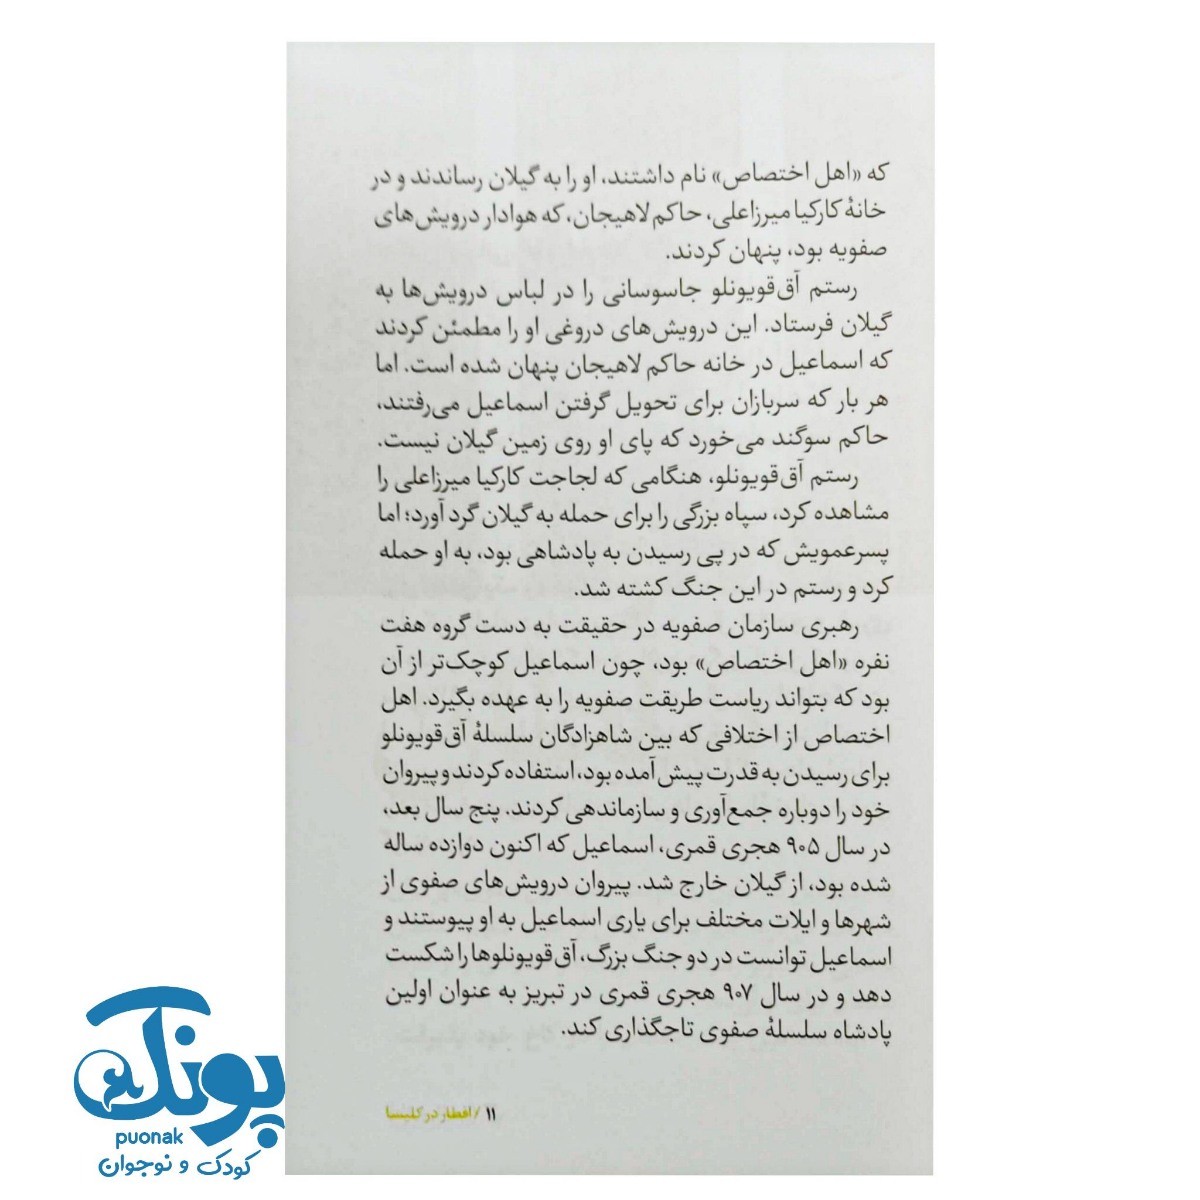 که «اهل اختصاص» نام داشتند، او را به گیلان رساندند و در
خانهٔ کارکیا میرزاعلی، حاکم لاهیجان، که هوادار درویش‌های
صفویه بود، پنهان کردند.
رستم آق‌قویونلو جاسوسانی را در لباس درویش‌ها به
گیلان فرستاد. این درویش‌های دروغی او را مطمئن کردند
که اسماعیل در خانه حاکم لاهیجان پنهان شده است. اما
هر بار که سربازان برای تحویل گرفتن اسماعیل می‌رفتند،
حاکم سوگند می‌خورد که پای او روی زمین گیلان نیست.
رستم آق‌قویونلو، هنگامی که لجاجت کارکیا میرزاعلی را
مشاهده کرد، سپاه بزرگی را برای حمله به گیلان گرد آورد؛ اما
پسرعمویش که در پی رسیدن به پادشاهی بود، به او حمله
کرد و رستم در این جنگ کشته شد.
رهبری سازمان صفویه در حقیقت به دست گروه هفت
نفره «اهل اختصاص» بود، چون اسماعیل کوچک‌تر از آن
بود که بتواند ریاست طریقت صفویه را به عهده بگیرد. اهل
اختصاص از اختلافی که بین شاهزادگان سلسلهٔ آق‌قویونلو
برای رسیدن به قدرت پیش آمده بود، استفاده کردند و پیروان
خود را دوباره جمع‌آوری و سازماندهی کردند. پنج سال بعد،
در سال ۹۰۵ هجری قمری، اسماعیل که اکنون دوازده ساله
شده بود، از گیلان خارج شد. پیروان درویش‌های صفوی از
شهرها و ایلات مختلف برای یاری اسماعیل به او پیوستند و
اسماعیل توانست در دو جنگ بزرگ، آق‌قویونلوها را شکست
دهد و در سال ۹۰۷ هجری قمری در تبریز به عنوان اولین
پادشاه سلسلهٔ صفوی تاجگذاری کند.
۱۱ / افطار در کلیسا
پونک
puonak
کودک و نوجوان